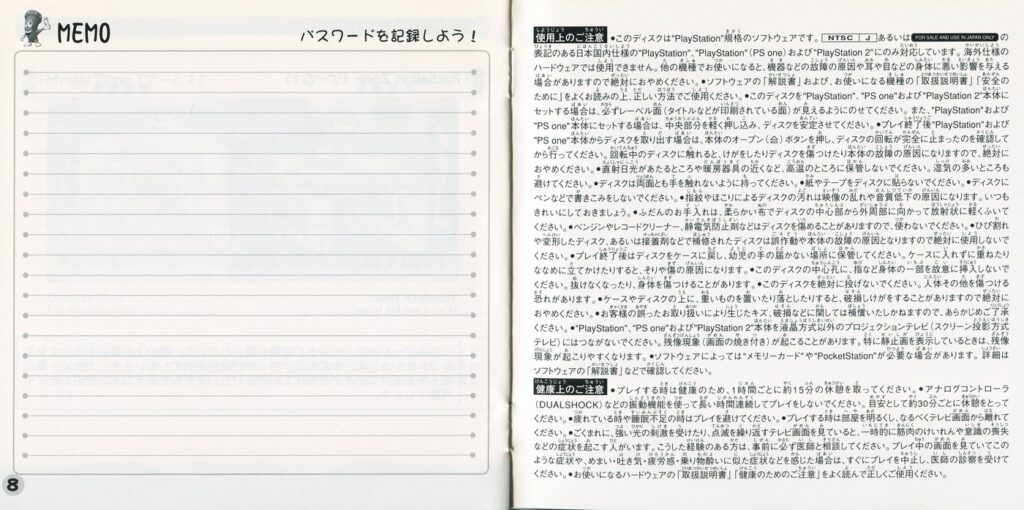 MEMO
パスワードを記録しよう！
8
使用上のご注意 ●このディスクは"PlayStation"規格のソフトウェアです。 NTSC J あるいは FOR SALE AND USE IN JAPAN ONLY の
表記のある日本国内仕様の"PlayStation"、"PlayStation"（PS one）および"PlayStation 2"にのみ対応しています。海外仕様の
ハードウェアでは使用できません。他の機種でお使いになると、機器などの故障の原因や耳や目などの身体に悪い影響を与える
場合がありますので絶対におやめください。●ソフトウェアの「解説書」および、お使いになる機種の「取扱説明書」「安全の
ために」をよくお読みの上、正しい方法でご使用ください。●このディスクを"PlayStation"、"PS one"および"PlayStation 2"本体に
セットする場合は、必ずレーベル面（タイトルなどが印刷されている面）が見えるようにのせてください。また、"PlayStation"および
"PS one"本体にセットする場合は、中央部分を軽く押し込み、ディスクを安定させてください。●プレイ終了後"PlayStation"および
"PS one"本体からディスクを取り出す場合は、本体のオープン（⏏）ボタンを押し、ディスクの回転が完全に止まったのを確認して
から行ってください。回転中のディスクに触れると、けがをしたりディスクを傷つけたり本体の故障の原因になりますので、絶対に
おやめください。●直射日光があたるところや暖房器具の近くなど、高温のところに保管しないでください。湿気の多いところも
避けてください。●ディスクは両面とも手を触れないように持ってください。●紙やテープをディスクに貼らないでください。●ディスクに
ペンなどで書きこみをしないでください。●指紋やほこりによるディスクの汚れは映像の乱れや音質低下の原因になります。いつも
きれいにしておきましょう。●ふだんのお手入れは、柔らかい布でディスクの中心部から外周部に向かって放射状に軽くふいて
ください。●ベンジンやレコードクリーナー、静電気防止剤などはディスクを傷めることがありますので、使わないでください。●ひび割れ
や変形したディスク、あるいは接着剤などで補修されたディスクは誤作動や本体の故障の原因となりますので絶対に使用しないで
ください。●プレイ終了後はディスクをケースに戻し、幼児の手の届かない場所に保管してください。ケースに入れずに重ねたり
ななめに立てかけたりすると、そりや傷の原因になります。●このディスクの中心孔に、指など身体の一部を故意に挿入しないで
ください。抜けなくなったり、身体を傷つけることがあります。●このディスクを絶対に投げないでください。人体その他を傷つける
恐れがあります。●ケースやディスクの上に、重いものを置いたり落としたりすると、破損しけがをすることがありますので絶対に
おやめください。●お客様の誤ったお取り扱いにより生じたキズ、破損などに関しては補償いたしかねますので、あらかじめご了承
ください。●"PlayStation"、"PS one"および"PlayStation 2"本体を液晶方式以外のプロジェクションテレビ（スクリーン投影方式
テレビ）にはつながないでください。残像現象（画面の焼き付き）が起こることがあります。特に静止画を表示しているときは、残像
現象が起こりやすくなります。●ソフトウェアによっては"メモリーカード"や"PocketStation"が必要な場合があります。詳細は
ソフトウェアの「解説書」などで確認してください。
健康上のご注意 ●プレイする時は健康のため、1時間ごとに約15分の休憩を取ってください。●アナログコントローラ
（DUALSHOCK）などの振動機能を使って長い時間連続してプレイをしないでください。目安として約30分ごとに休憩をとって
ください。●疲れている時や睡眠不足の時はプレイを避けてください。●プレイする時は部屋を明るくし、なるべくテレビ画面から離れて
ください。●ごくまれに、強い光の刺激を受けたり、点滅を繰り返すテレビ画面を見ていると、一時的に筋肉のけいれんや意識の喪失
などの症状を起こす人がいます。こうした経験のある方は、事前に必ず医師と相談してください。プレイ中の画面を見ていてこの
ような症状や、めまい・吐き気・疲労感・乗り物酔いに似た症状などを感じた場合は、すぐにプレイを中止し、医師の診察を受けて
ください。●お使いになるハードウェアの「取扱説明書」「健康のためのご注意」をよく読んで正しくご使用ください。